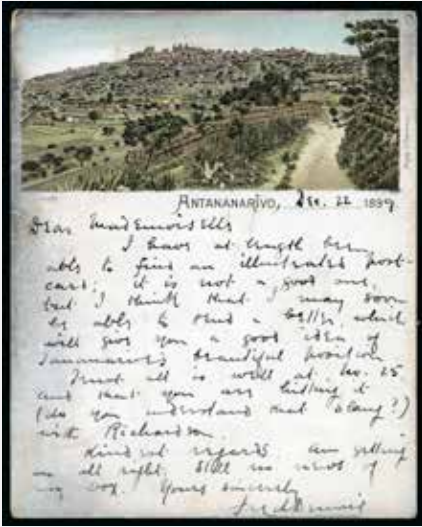 ANTANANARIVO, Dec. 22 1899
Dear Mademoiselle
I have at length been
able to find an illustrated post-
card; it is not a good one,
but I think that I may soon
be able to send a better, which
will give you a good idea of
Tananarive's beautiful position
Trust all is well at No. 25
and that you are hitting it
(do you understand that slang?)
with Richardson.
Kindest regards. Am getting
on all right. Still no news of
my box. Yours sincerely